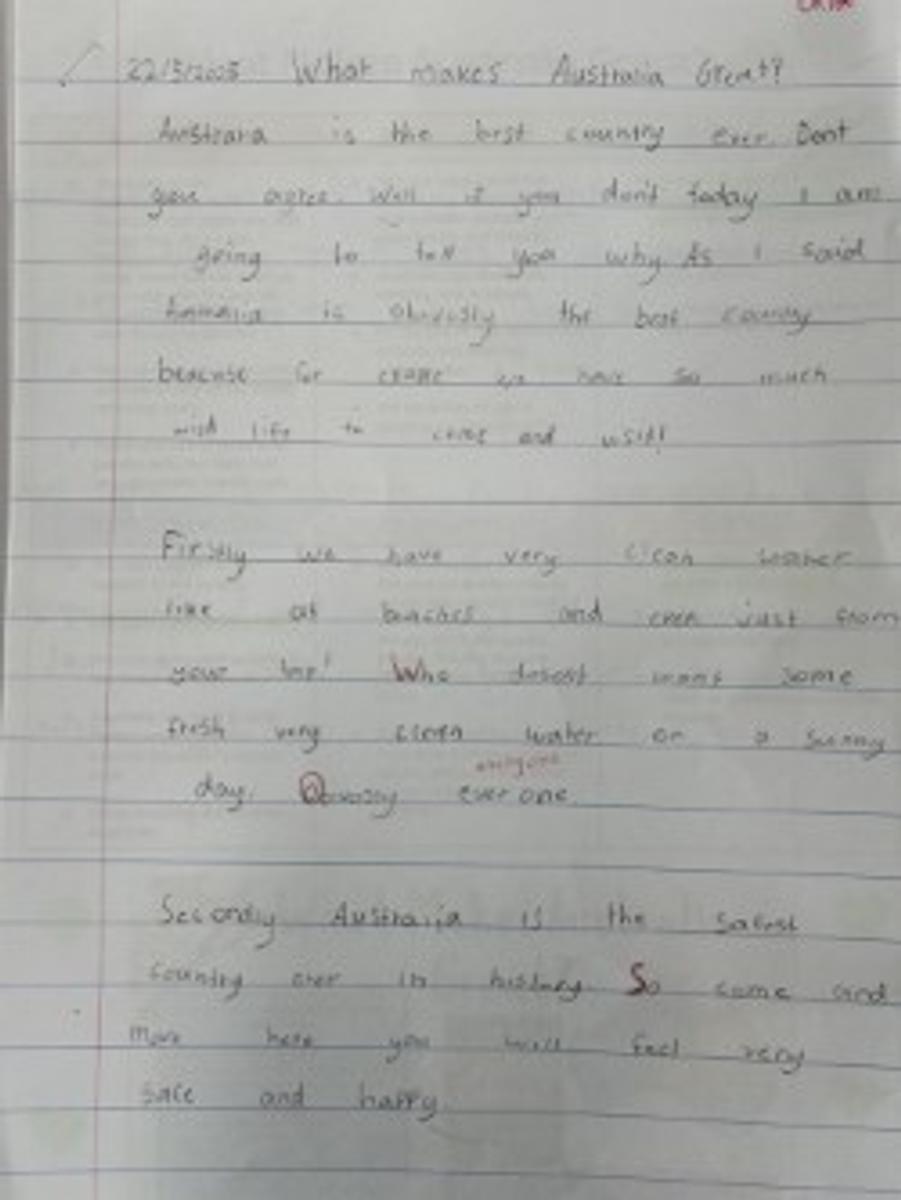 22/5/2025 What makes Australia Great?
is the best country ever. Dont
you agree. Well if you don't today I am
going to tell you why As I said
is the best country
because for we have so much
life to and visit!
Firstly we have very clean
like at beaches and even just from
your Who wants some
fresh very clean water on a sunny
day. everyone
ever one
Secondly Australia is the safest
country ever in history So come and
Move here you will feel very
safe and happy